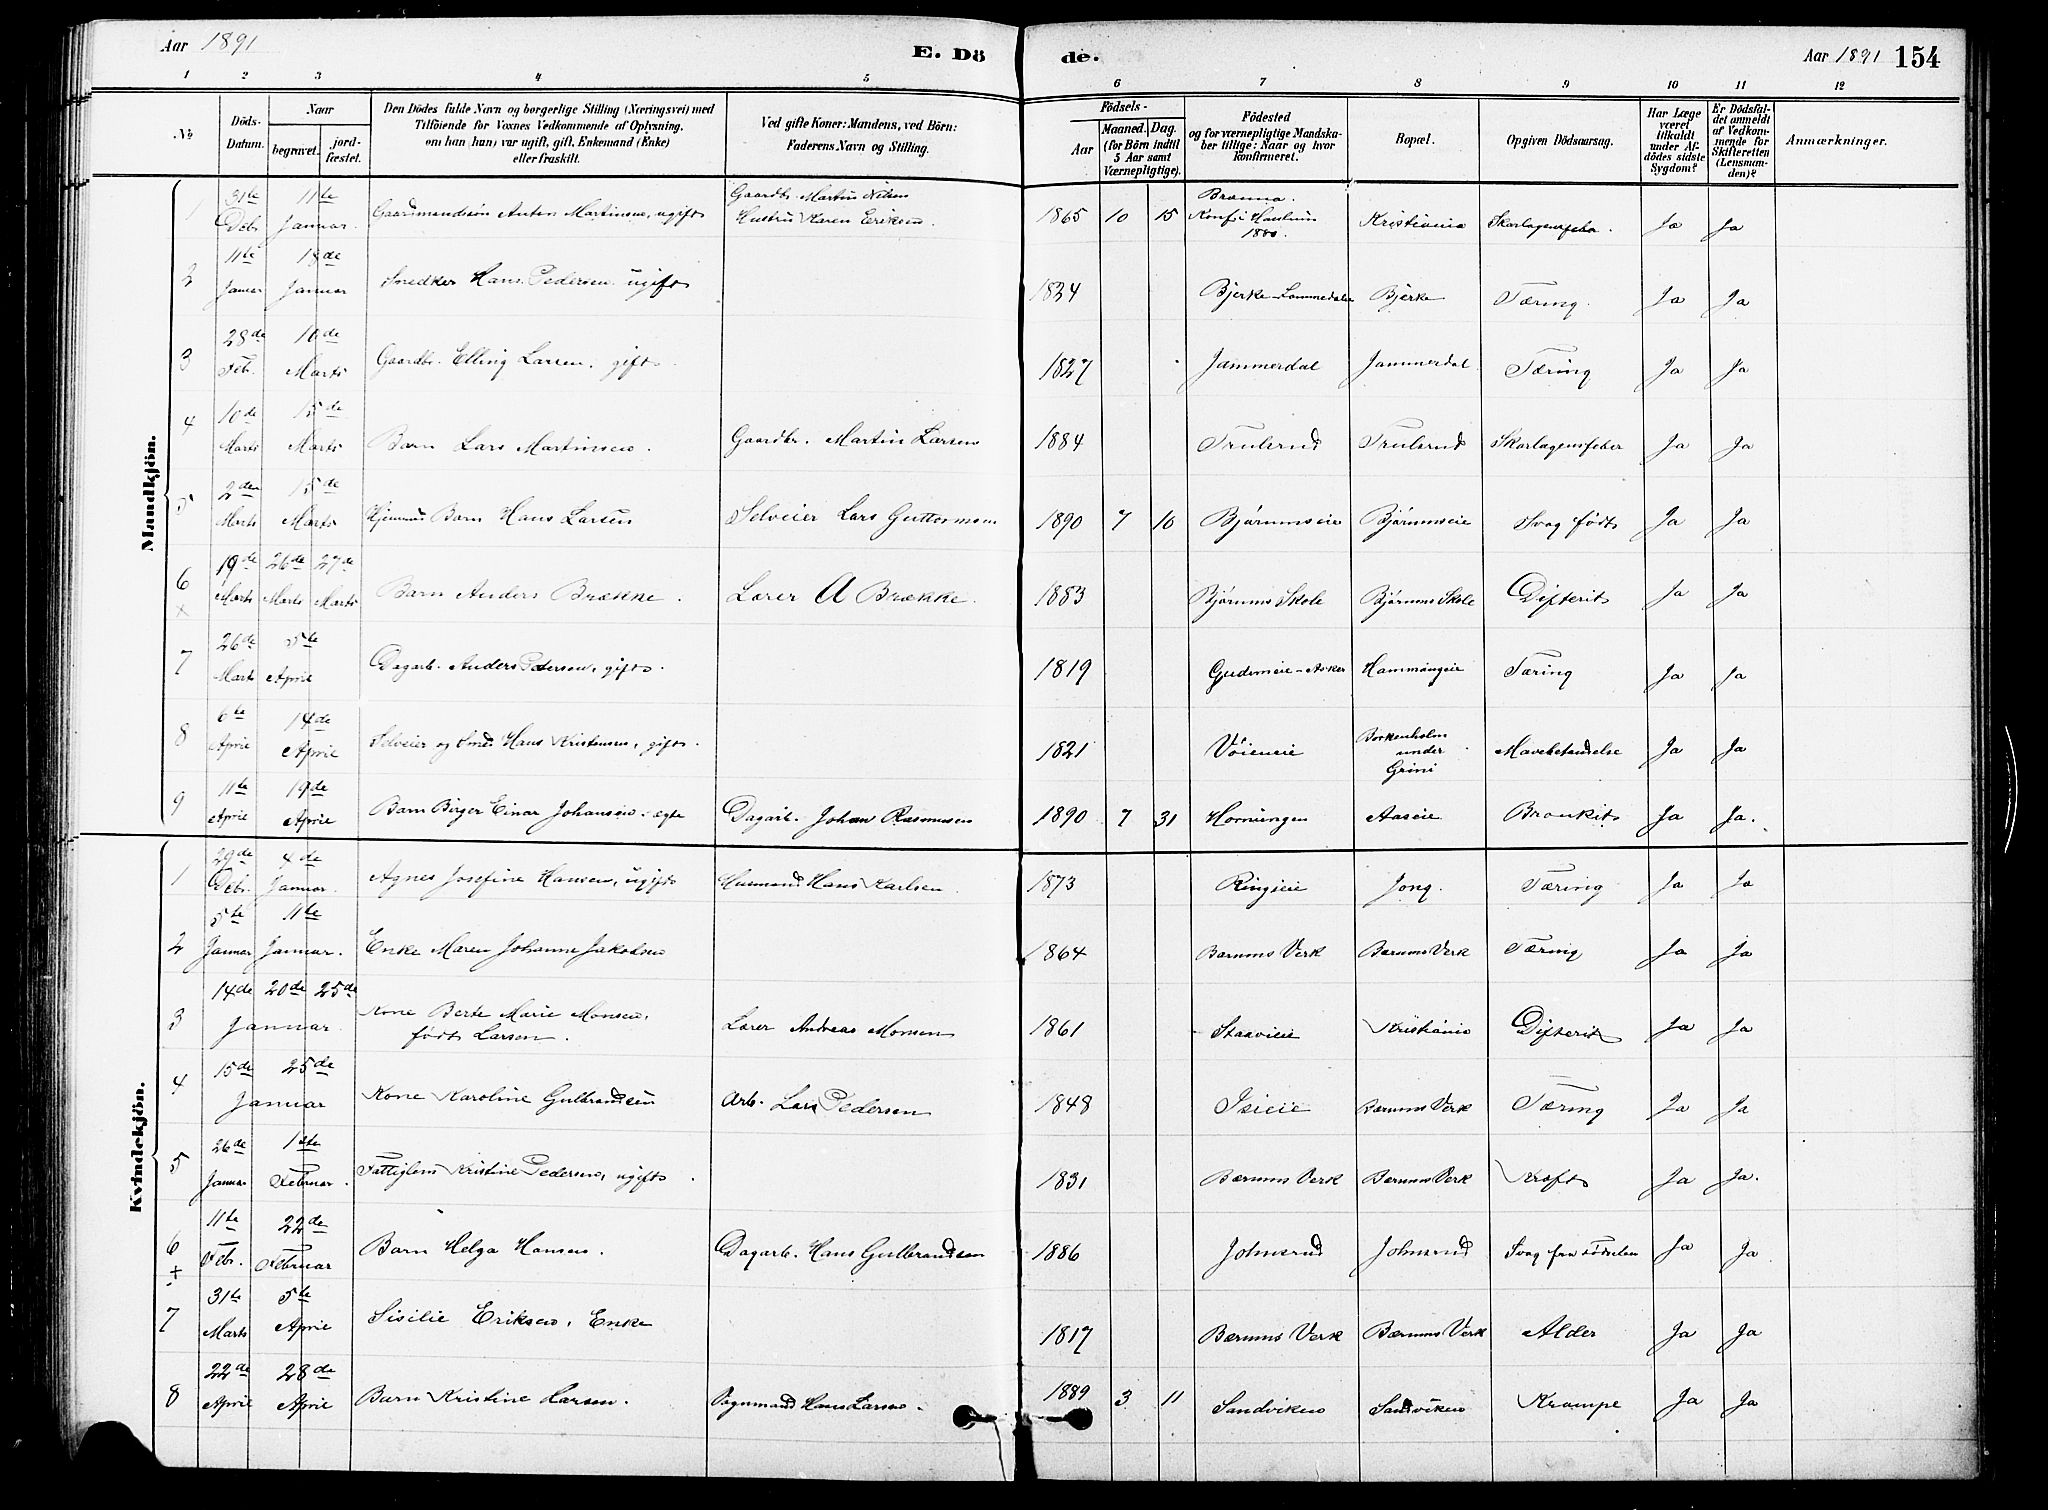 Aar 1891
E. Dö
de.
Aar 1891
154
1 2 3 4 5 6 7 8 9 10 11 12
No
Döds-Datum.
Naar begravet. jordfæstet.
Den Dödes fulde Navn og borgerlige Stilling (Næringsvei) med
Tilföiende for Voxnes Vedkommende af Oplysning,
om han (hun) var ugift, gift, Enkemand (Enke)
eller fraskilt.
Ved gifte Koner: Mandens, ved Börn:
Faderens Navn og Stilling.
Födsels-
Aar
Maaned. Dag.
(for Börn indtil
5 Aar samt
Værnepligtige).
Födested
og for værnepligtige Mandska-
ber tillige: Naar og hvor
konfirmeret.
Bopæl.
Opgiven Dödsaarsag.
Har Læge
været
tilkaldt
under Af-
dödes sidste
Sygdom?
Er Dödsfal-
det anmeldt
af Vedkom-
mende for
Skifteretten
(Lensman-
den)?
Anmærkninger.
Mandkjön.
1 31te Debr. 11te Januar. Gaardmandssön Anton Martinsen, ugift Gaardbr. Martin Nilsen Hustru Karen Eriksen. 1865 10 15 Konf. i 1880. Kristiania Skarlagensfeber. Ja Ja
2 11te Januar 18de Januar Snedker Hans Pedersen ugift 1824 Bjerke-Lommedalen Bjerke Tæring. Ja Ja
3 28de Feb. 10de Marts Gaardbr. Elling Larsen, gift. 1827 Jammerdal Jammerdal Tæring Ja Ja
4 10de Marts 15de Marts Barn Lars Martinsen. Gaardbr. Martin Larsen 1884 Trulsrud Trulsrud Skarlagensfeber Ja Ja
5 2den Marts 15de Marts Barn Hans Larsen Selveier Lars Guttormsen 1890 7 10 Bjørumseie Bjørumseie Svag født Ja Ja
6 + 19de Marts 26de Marts 27de Marts Barn Anders Brække. Lærer A Brække. 1883 Bjørums Skole Bjørums Skole Difterit Ja Ja
7 26de Marts 5te April Dagarb. Anders Pedersen, gift. 1819 Tæring Ja Ja
8 6te April 14de April Selveier og Smed Hans Kristensen, gift. 1821 Vøieneie Borkenholm under Grini Mavebetændelse Ja Ja
9 11te April 19de April Barn Birger Einar Johansen. ægte Dagarb. Johan Rasmussen 1890 7 31 Horningen Aaseie Bronkit Ja Ja.
Kvindekjön.
1 29de Debr. 4de Januar. Agnes Josefine Hansen, ugift Husmand Hans Karlsen. 1873 Ringieie Jong. Tæring Ja Ja
2 5te Januar 11te Januar. Enke Maren Johanne Jakobsen 1864 Bærums Verk Bærums Verk Tæring Ja Ja
3 14de 20de 25de Januar Kone Berte Marie Monsen, født Larsen. Lærer Andreas Monsen 1861 Staavieie Kristiania Difterit Ja Ja
4 15de 25de Januar Kone Karoline Gulbrandsen Arb. Lars Pedersen 1848 Isieie Bærums Verk Tæring Ja Ja
5 26de Januar 1ste Februar. Fattiglem Kristine Pedersen, ugift. 1831 Bærums Verk Bærums Verk Kræft Ja Ja.
6 + 11te Febr. 22de Februar Barn Helga Hansen. Dagarb. Hans Gulbrandsen 1886 Johnsrud Johnsrud Svag fra Fødselen Ja Ja
7 31te Marts 5te April Sisilie Eriksen, Enke 1817 Bærums Verk Bærums Verk Alder Ja Ja
8 22de April 28de April Barn Kristine Larsen. Vognmand Hans Larsen. 1889 3 11 Sandviken Sandviken Krampe Ja Ja